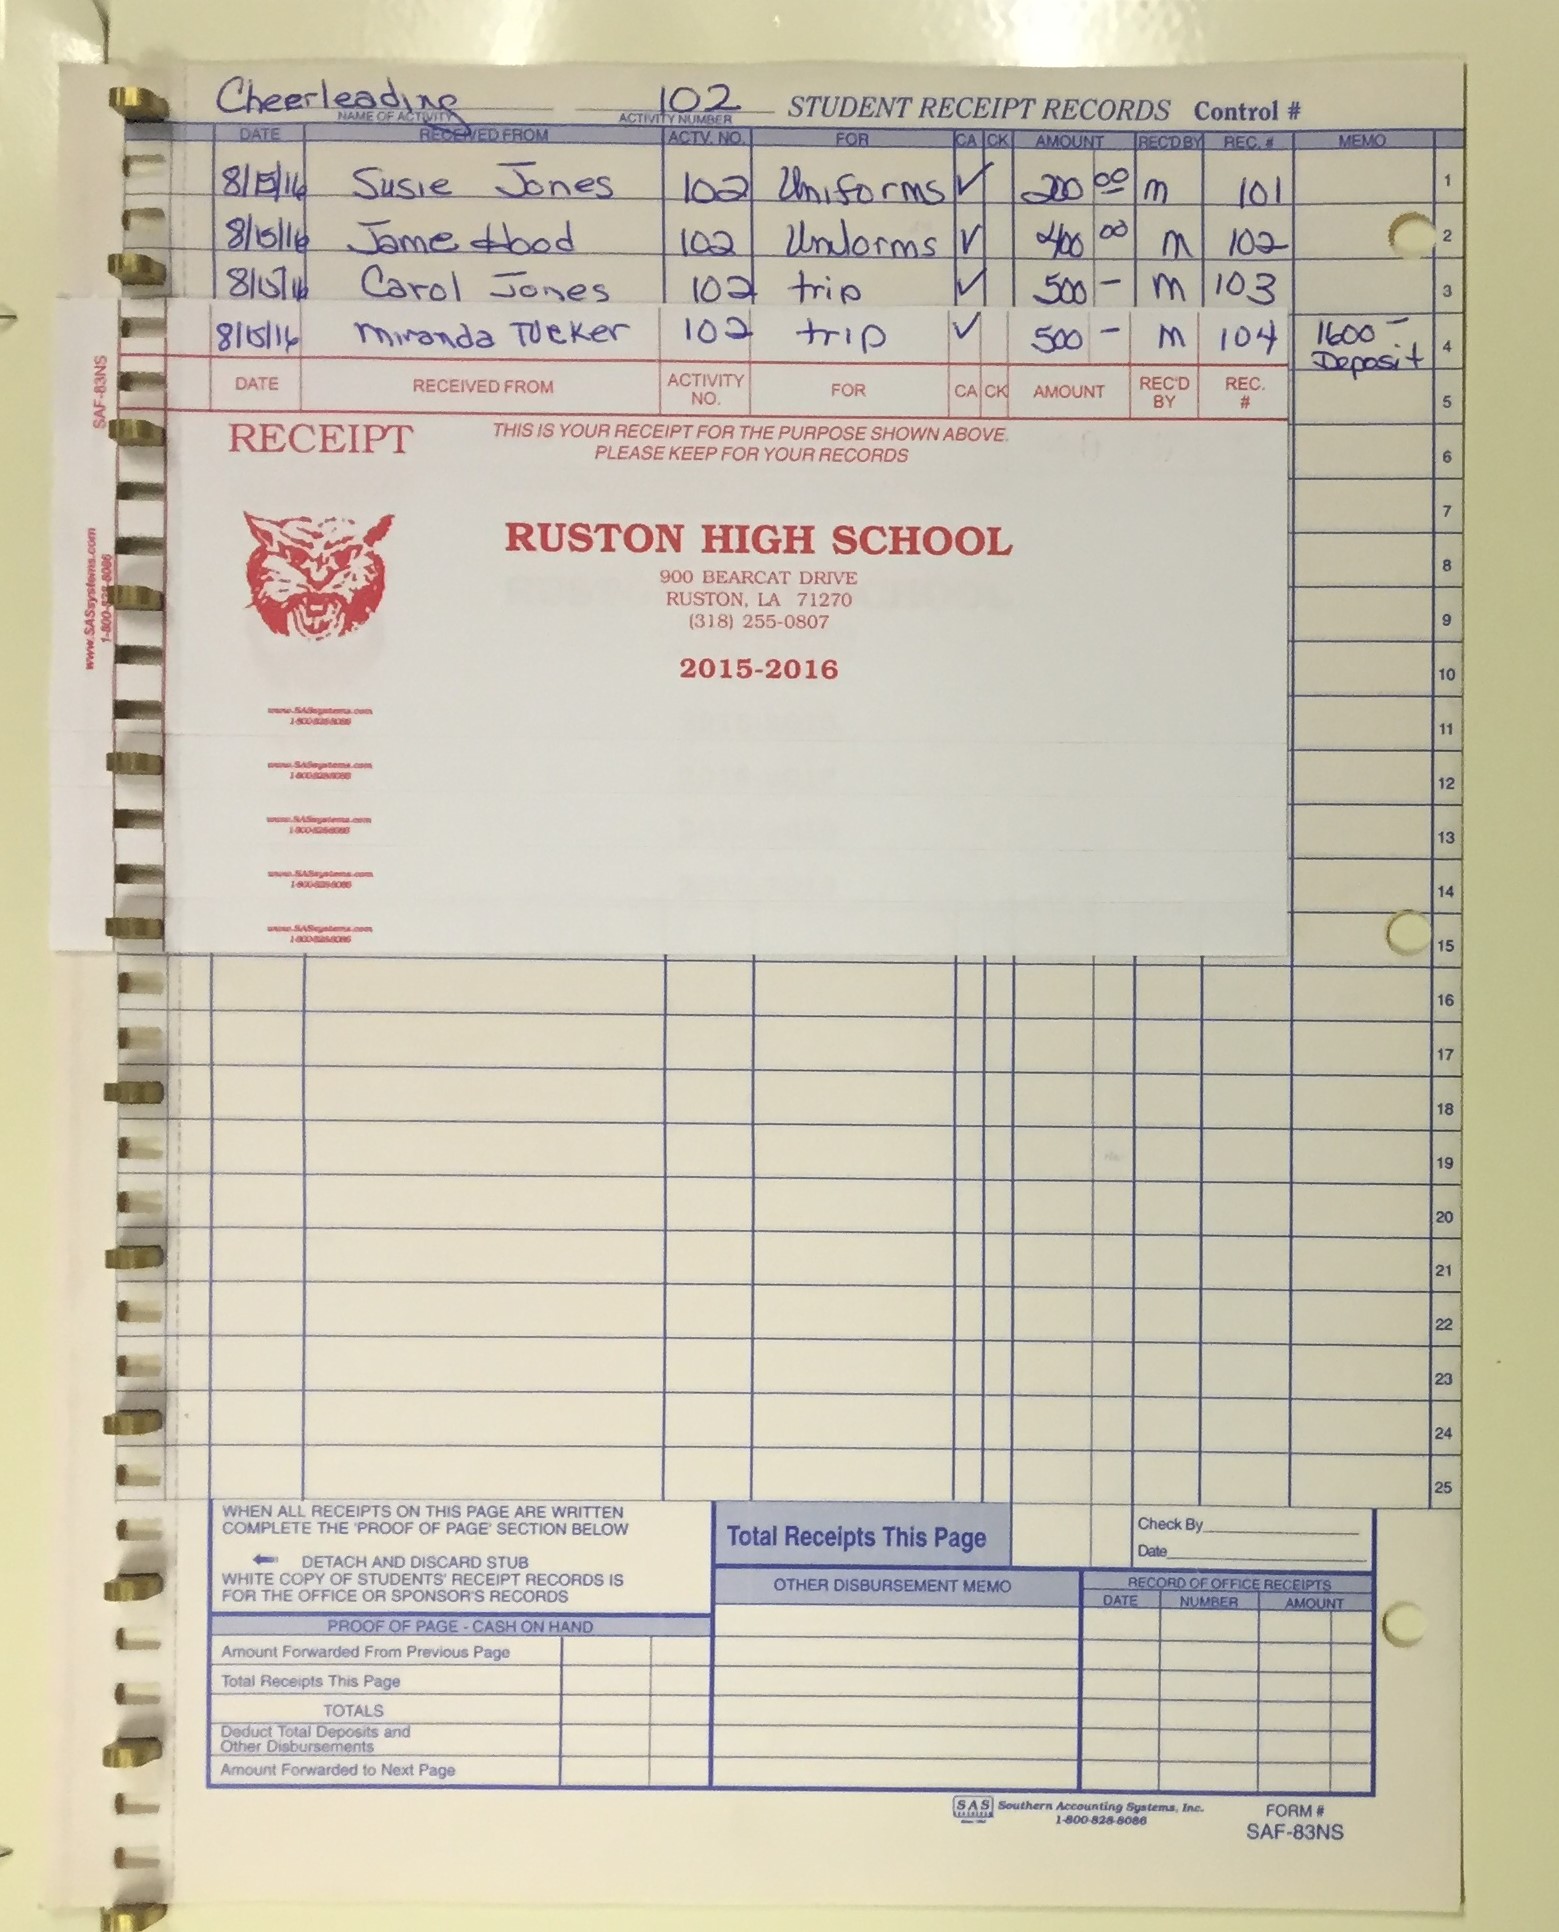 Cheerleading 102 STUDENT RECEIPT RECORDS Control #
NAME OF ACTIVITY ACTIVITY NUMBER
DATE RECEIVED FROM ACTV. NO. FOR CA CK AMOUNT REC'D BY REC. # MEMO
8/15/16 Susie Jones 102 Uniforms ✓ 200 00 m 101 1
8/15/16 Hood 102 ✓ 400 00 m 102 2
8/15/16 Carol Jones 102 trip ✓ 500 – m 103 3
8/15/16 Miranda Tucker 102 trip ✓ 500 – m 104 1600 – 4
Deposit
DATE RECEIVED FROM ACTIVITY NO. FOR CA CK AMOUNT REC'D BY REC. # 5
RECEIPT THIS IS YOUR RECEIPT FOR THE PURPOSE SHOWN ABOVE.
PLEASE KEEP FOR YOUR RECORDS 6
7
RUSTON HIGH SCHOOL
900 BEARCAT DRIVE 8
RUSTON, LA 71270
(318) 255-0807 9
2015-2016 10
SAF-83NS
www.SASsystems.com
1-800-828-8086
www.SASsystems.com
1-800-828-8086 11
www.SASsystems.com
1-800-828-8086 12
www.SASsystems.com
1-800-828-8086 13
www.SASsystems.com
1-800-828-8086 14
www.SASsystems.com
1-800-828-8086 15
16
17
18
19
20
21
22
23
24
25
WHEN ALL RECEIPTS ON THIS PAGE ARE WRITTEN
COMPLETE THE 'PROOF OF PAGE' SECTION BELOW
← DETACH AND DISCARD STUB
WHITE COPY OF STUDENTS' RECEIPT RECORDS IS
FOR THE OFFICE OR SPONSOR'S RECORDS
Total Receipts This Page
Check By
Date
PROOF OF PAGE - CASH ON HAND
Amount Forwarded From Previous Page
Total Receipts This Page
TOTALS
Deduct Total Deposits and
Other Disbursements
Amount Forwarded to Next Page
OTHER DISBURSEMENT MEMO
RECORD OF OFFICE RECEIPTS
DATE NUMBER AMOUNT
SAS Southern Accounting Systems, Inc.
1-800-828-8086
FORM #
SAF-83NS